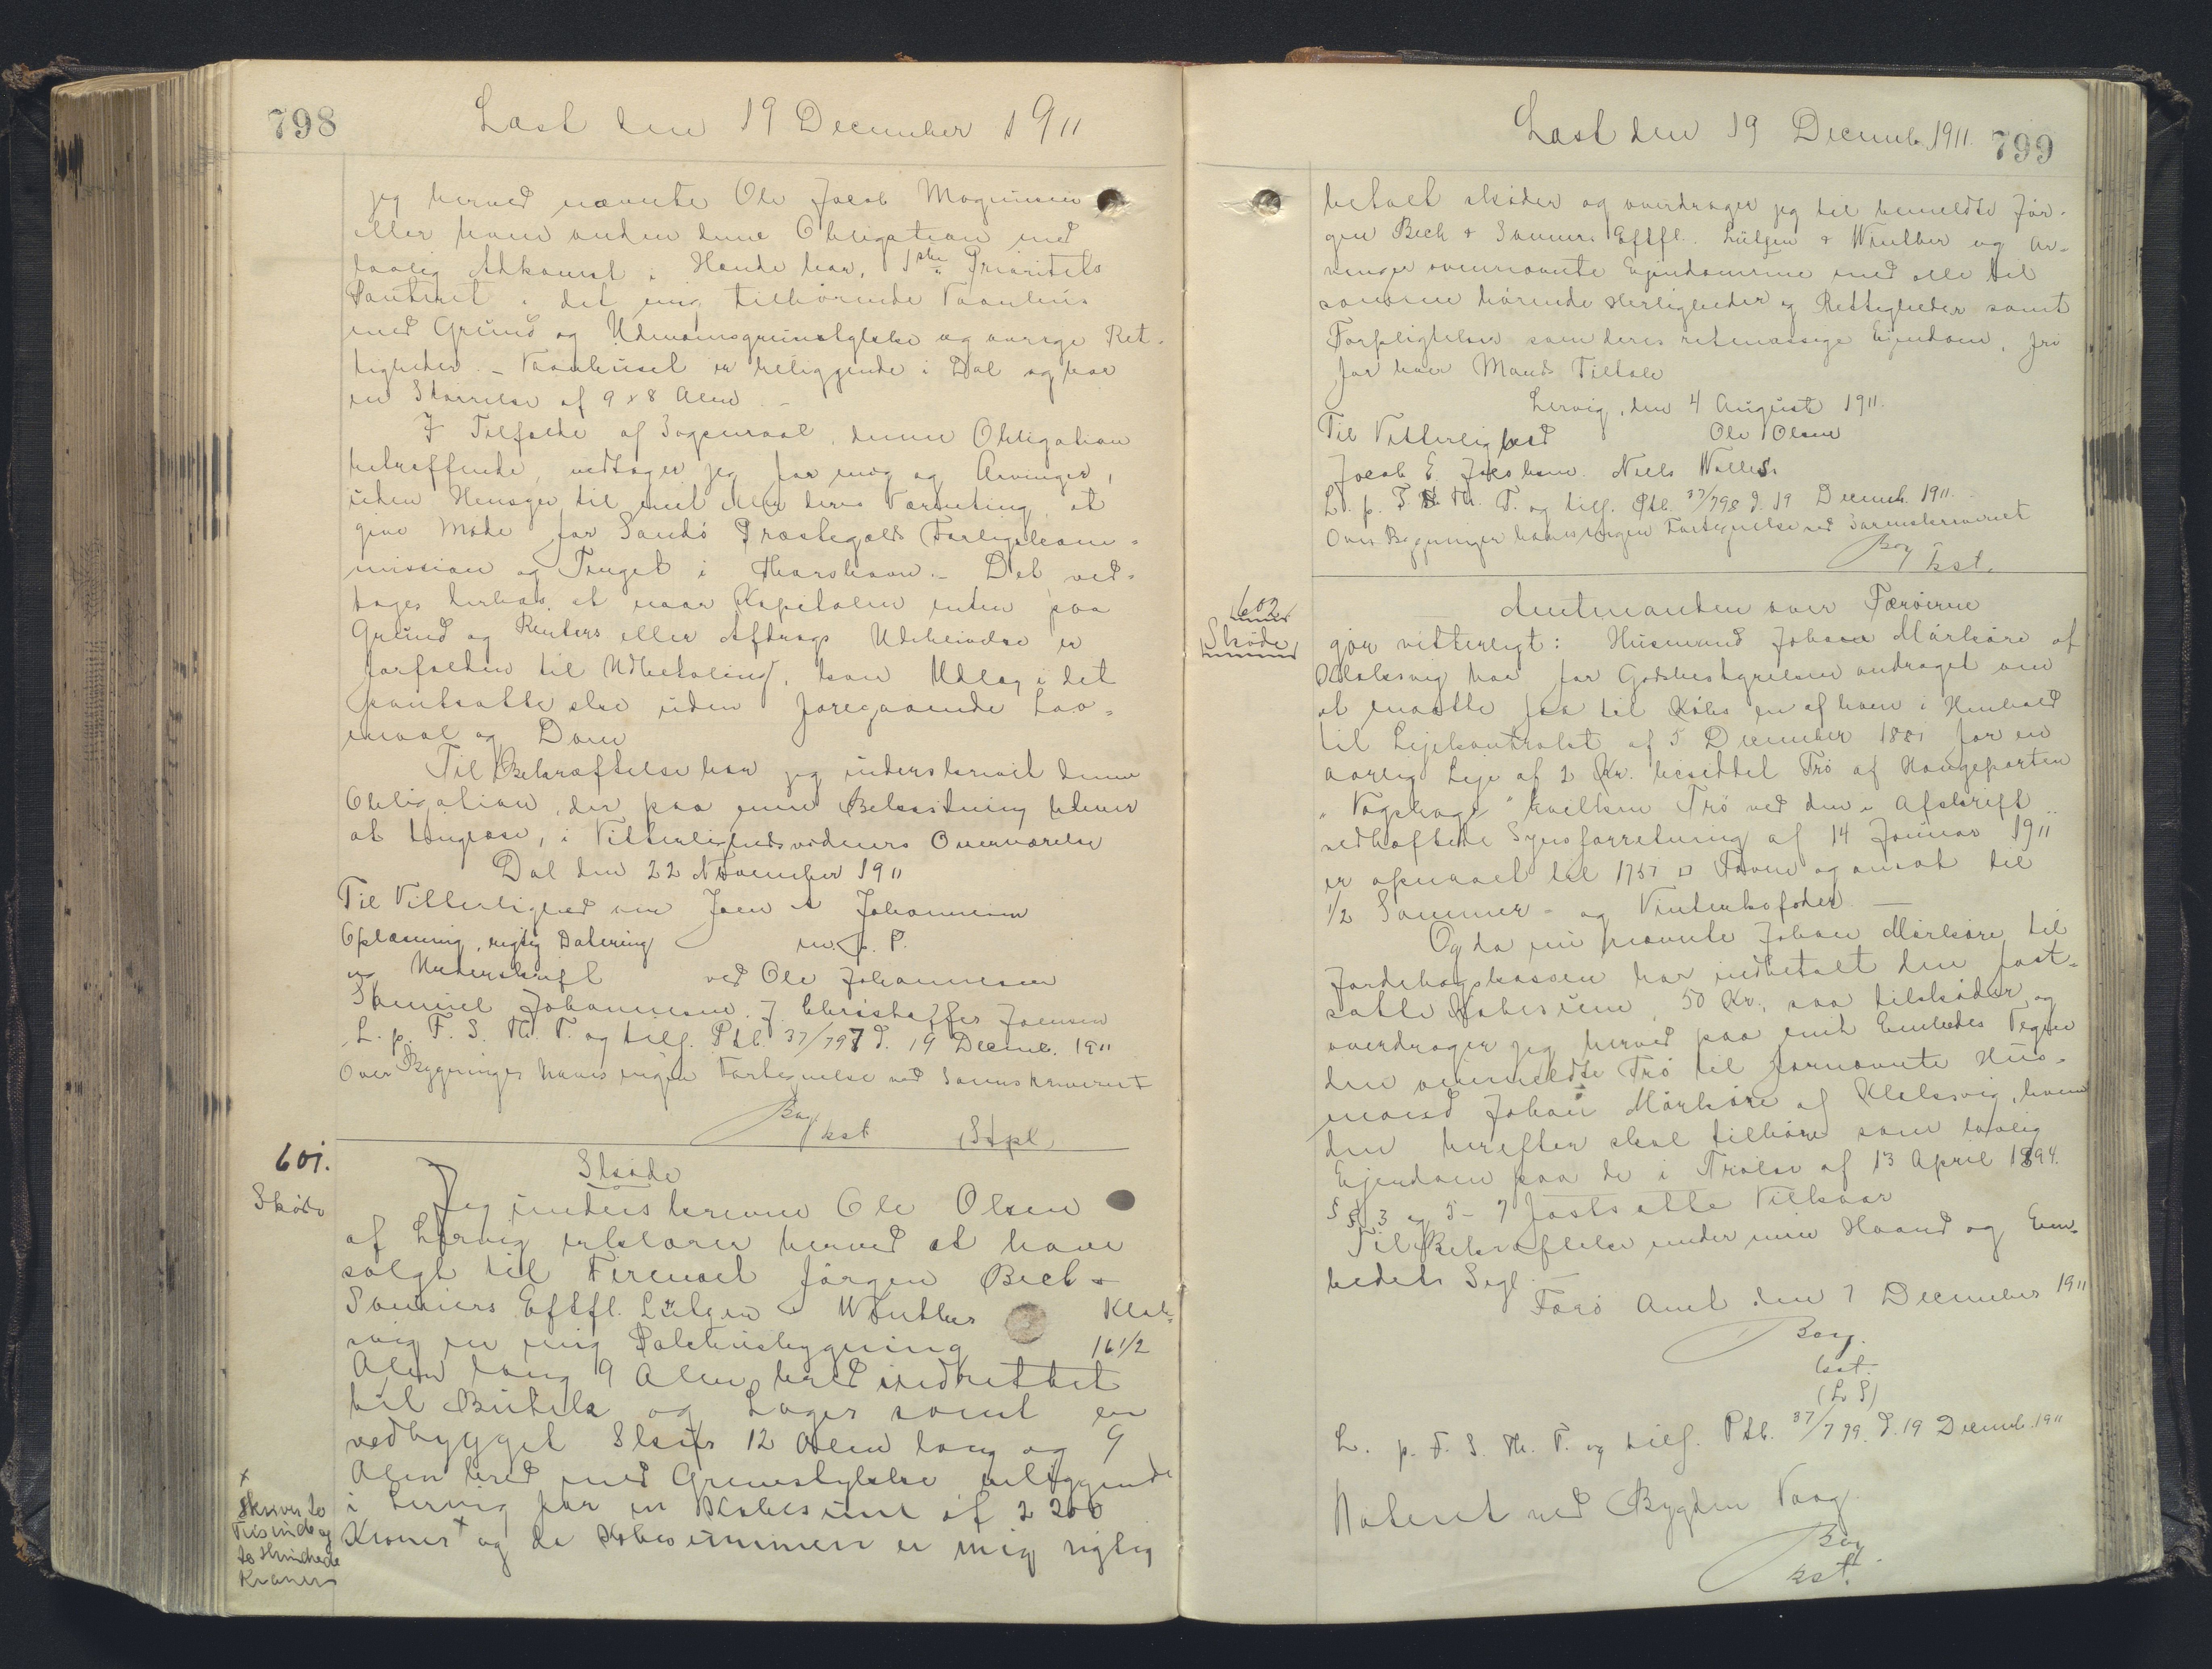 798
Læst den 19 December 1911
jeg herved nævnte Ole Jacob Magnussen
eller hvem anden denne Obligation med
lovlig Adkomst i Hænde har, 1ste Prioritets
Panteret i det mig tilhørende Vaanhus
med Grund og Udmarksgrundstykke og øvrige Ret-
tigheder. - Vaanhuset er beliggende i Dal og har
en Størrelse af 9 x 8 Alen. -
I Tilfælde af Søgsmaal, denne Obligation
betræffende, vedtager jeg for mig og Arvinger,
uden Hensyn til mit eller deres Værneting, at
give Møde for Sandø Præstegælds Forligskom-
mission og Tinget i Thorshavn. - Det ved-
tages derhos, at naar Kapitalen enten paa
Grund og Renters eller Afdrags Udeblivelse er
forfalden til Udbetaling, kan Udlæg i det
pantsatte ske uden foregaaende Lov-
maal og Dom
Til Bekræftelse har jeg underskrevet denne
Obligation, der paa min Bekostning bliver
at tinglæse, i Vitterlighedsvidners Overværelse
Dal den 22 November 1911
Til Vitterlighed om Joen A Johannesen
Oplæsning, rigtig Datering m. f. P.
og Underskrift ved Ole Johannesen
Samuel Johannesen. J. Christoffer Joensen
L. p. F. S. Th. T. og tilf. Ptb. 37/797 d. 19 Decemb. 1911
Over Bygninger haves ingen Fortegnelse ved Sorenskriveriet
Bay
kst (Stpl.)
601.
Skøde
Skøde
Jeg underskrevne Ole Olsen
af Lervig erklærer herved at have
solgt til Firmaet Jørgen Bech &
Sønners Eftfl. Lützen & Winther Klak-
svig en mig Pakhusbygning 16 1/2
Alen lang 9 Alen bred indrettet
til Butik og Lager samt en
vedbygget Skur 12 Alen lang og 9
Alen bred med Grundstykke beliggende
i Lervig for en Købesum af 2 200
Kroner x og da Købesummen er mig rigtig
x
skriver to
Tusinde og
to Hundrede
Kroner
Læst den 19 Decemb. 1911.
799
betalt skøder og overdrager jeg til bemeldte Jør-
gen Bech & Sønners Eftfl. Lützen & Winther og Ar-
vinger ovennævnte Ejendomme med alle til
samme hørende Herligheder og Rettigheder samt
Forpligtelser som deres retmæssige Ejendom, fri
for hver Mands Tiltale
Lervig, den 4 August 1911.
Til Vitterlighed Ole Olsen
Jacob E Jacobsen. Niels
L. p. F. S. Th. T. og tilf. Ptb. 37/798 d. 19 Decemb. 1911.
Over Bygninger haves ingen Fortegnelse ved Sorenskriveriet
Bay
kst.
602
Skøde
Amtmanden over Færøerne
gør vitterligt: Husmand Johan Mørkøre af
Klaksvig har for Godsbestyrelsen andraget om
at maatte faa til Købs en af ham i Henhold
til Lejekontrakt af 5 December 1881 for en
aarlig Leje af 2 Kr. besiddet Trø af Haugeparten
„Vagshage" hvilken Trø ved den i Afskrift
vedhæftede Synsforretning af 14 Januar 1911
er opmaalt til 1757 □ Favne og ansat til
1/2 Sommer- og Vinterkofoder. -
Og da nu nævnte Johan Mørkøre til
Jordebogskassen har indbetalt den fast-
satte Købesum, 50 Kr., saa tilskøder og
overdrager jeg herved paa mit Embedes Vegne
den ommeldte Trø til fornævnte Hus-
mand Johan Mørkøre af Klaksvig, hvem
den herefter skal tilhøre som lovlig
Ejendom paa de i Trølov af 13 April 1894.
§§ 3 og 5-7 fastsatte Vilkaar
Til Bekræftelse under min Haand og Em-
bedets Segl.
Færø Amt den 7 December 1911
Bay.
kst.
(L S)
L. p. F. S. Th. T. og tilf. Ptb. 37/799. d. 19 Decemb. 1911
Noteret ved Bygden Vaag.
Bay
kst.